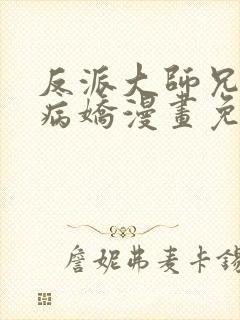 反派大師兄
病嬌漫畫免
詹妮弗麦卡錫